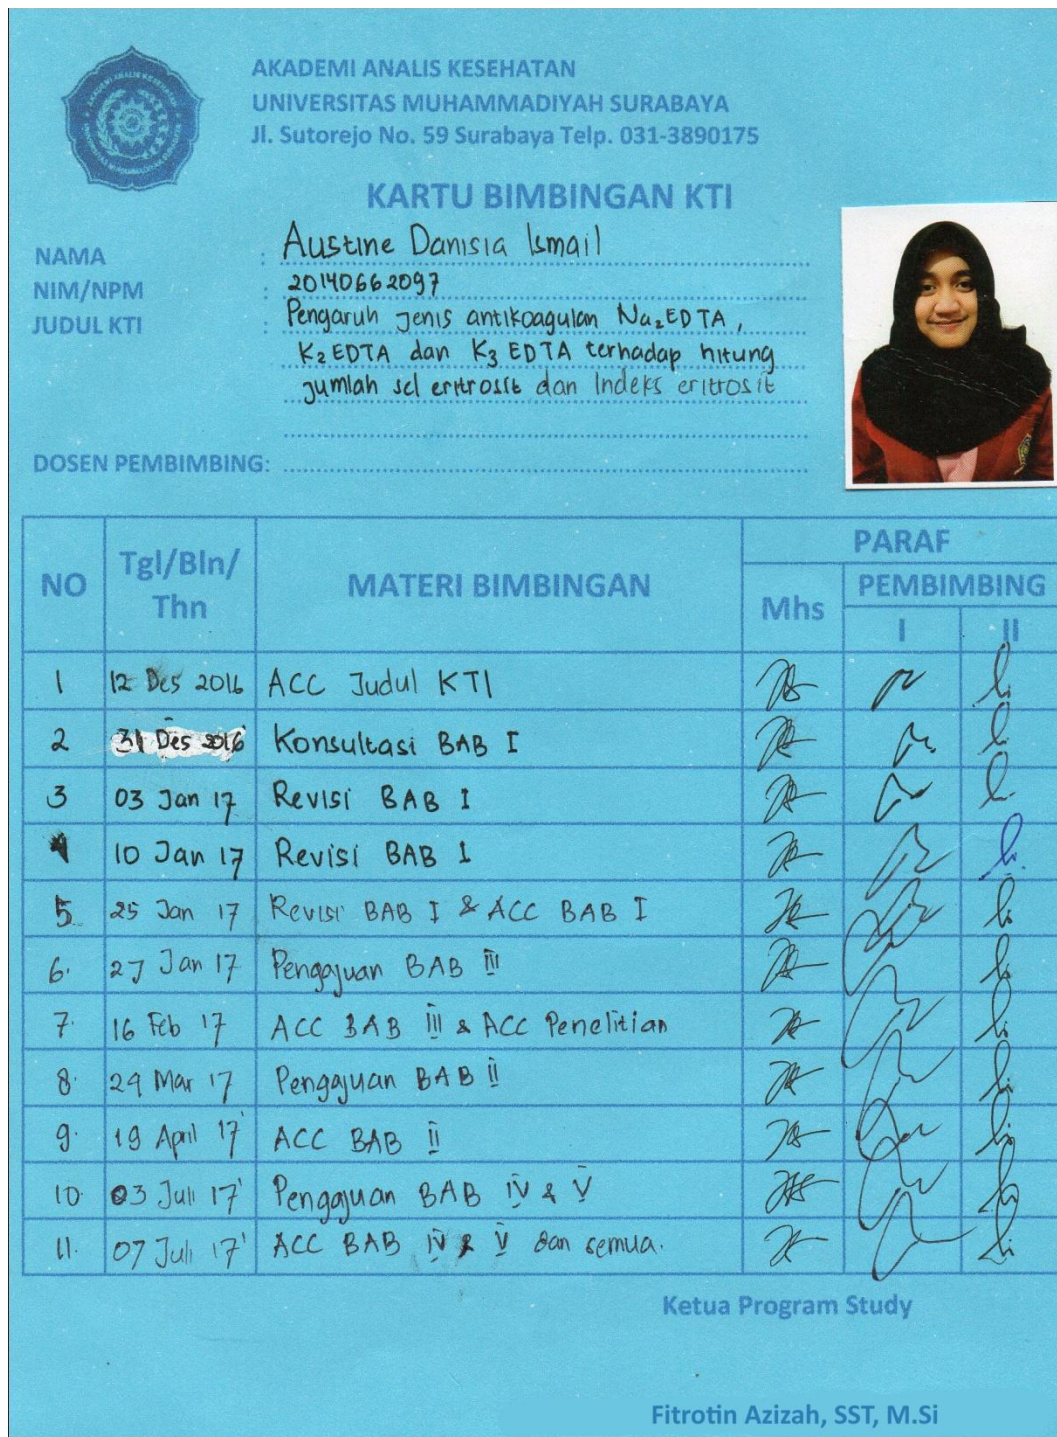 AKADEMI ANALIS KESEHATAN
UNIVERSITAS MUHAMMADIYAH SURABAYA
Jl. Sutorejo No. 59 Surabaya Telp. 031-3890175
KARTU BIMBINGAN KTI
NAMA : Austine Danisia Ismail
NIM/NPM : 20140662097
JUDUL KTI : Pengaruh Jenis antikoagulan Na₂EDTA,
K₂EDTA dan K₃EDTA terhadap hitung
jumlah sel eritrosit dan Indeks eritrosit
DOSEN PEMBIMBING:
NO Tgl/Bln/Thn MATERI BIMBINGAN PARAF
Mhs PEMBIMBING
I II
1 12 Des 2016 ACC Judul KTI
2 31 Des 2016 Konsultasi BAB I
3 03 Jan 17 Revisi BAB I
4 10 Jan 17 Revisi BAB I
5. 25 Jan 17 Revisi BAB I & ACC BAB I
6. 27 Jan 17 Pengajuan BAB III
7. 16 Feb 17 ACC BAB III & ACC Penelitian
8. 29 Mar 17 Pengajuan BAB II
9. 19 April 17 ACC BAB II
10. 03 Juli 17 Pengajuan BAB IV & V
11. 07 Juli 17 ACC BAB IV & V dan semua.
Ketua Program Study
Fitrotin Azizah, SST, M.Si